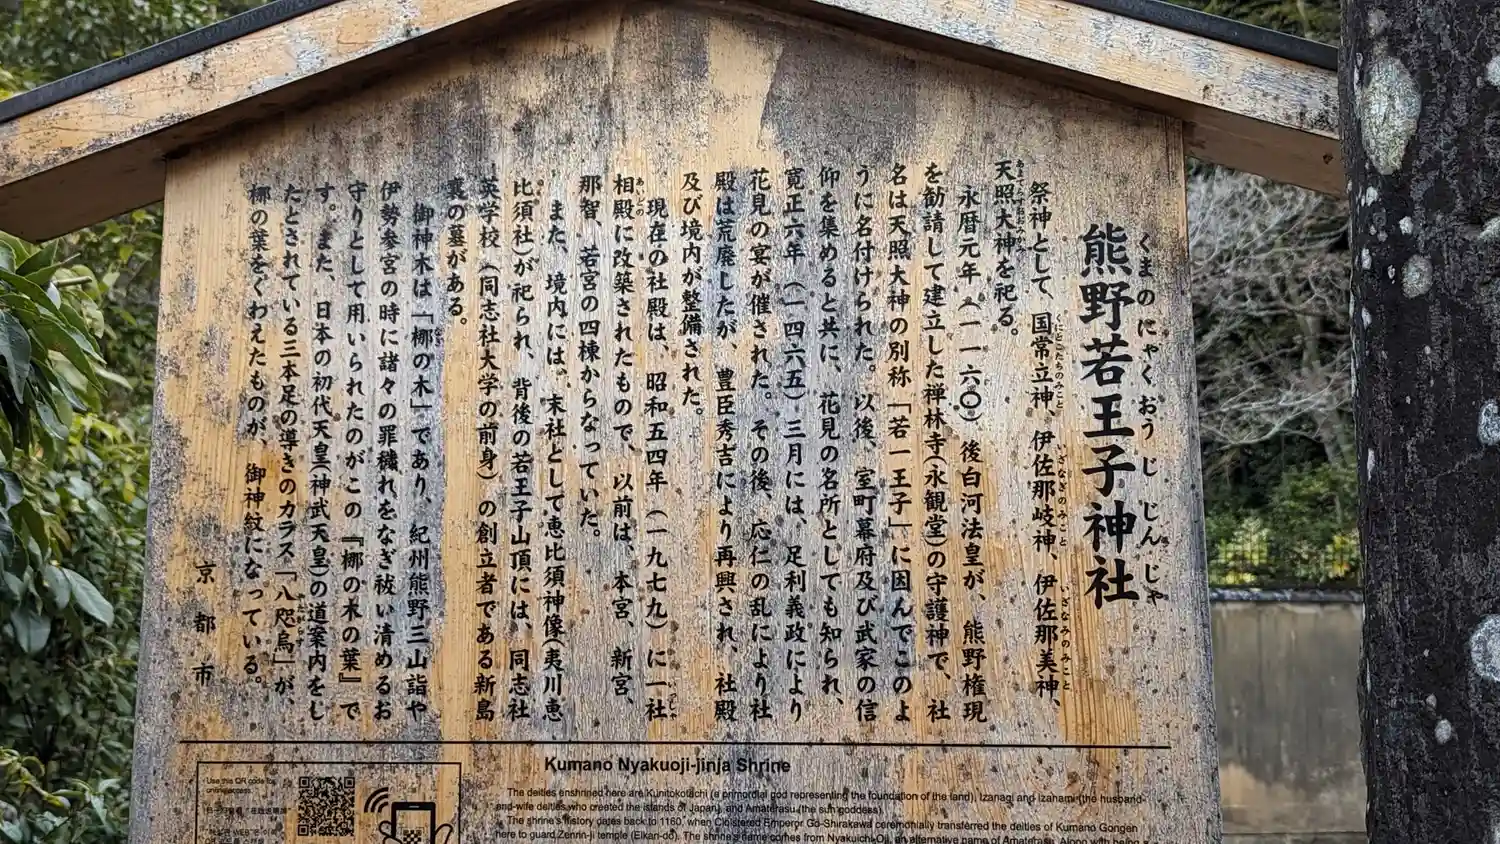 熊野若王子神社
くまのにゃくおうじじんじゃ
祭神として、国常立神、伊佐那岐神、伊佐那美神、
天照大神を祀る。
永暦元年（一一六〇）後白河法皇が、熊野権現
を勧請して建立した禅林寺（永観堂）の守護神で、社
名は天照大神の別称「若一王子」に因んでこのよ
うに名付けられた。以後、室町幕府及び武家の信
仰を集めると共に、花見の名所としても知られ、
寛正六年（一四六五）三月には、足利義政により
花見の宴が催された。その後、応仁の乱により社
殿は荒廃したが、豊臣秀吉により再興され、社殿
及び境内が整備された。
現在の社殿は、昭和五四年（一九七九）に一社
相殿に改築されたもので、以前は、本宮、新宮、
那智、若宮の四棟からなっていた。
また、境内には、末社として恵比須神像（夷川恵
比須社）が祀られ、背後の若王子山頂には、同志社
英学校（同志社大学の前身）の創立者である新島
襄の墓がある。
御神木は「梛の木」であり、紀州熊野三山詣や
伊勢参宮の時に諸々の罪穢れをなぎ祓い清めるお
守りとして用いられたのがこの『梛の木の葉』で
す。また、日本の初代天皇（神武天皇）の道案内をし
たとされている三本足の導きのカラス「八咫烏」が、
梛の葉をくわえたものが、御神紋になっている。
京都市
Kumano Nyakuoji-jinja Shrine
The deities enshrined here are Kunitokotachi (a primordial god representing the foundation of the land), Izanagi and Izanami (the husband-
and-wife deities who created the islands of Japan), and Amaterasu (the sun goddess).
The shrine's history dates back to 1160, when Cloistered Emperor Go-Shirakawa ceremonially transferred the deities of Kumano Gongen
here to guard Zenrin-ji temple (Eikan-dō). The shrine's name comes from Nyakuichi-Oji, an alternative name of Amaterasu. Along with being
Use this QR code for
online access.